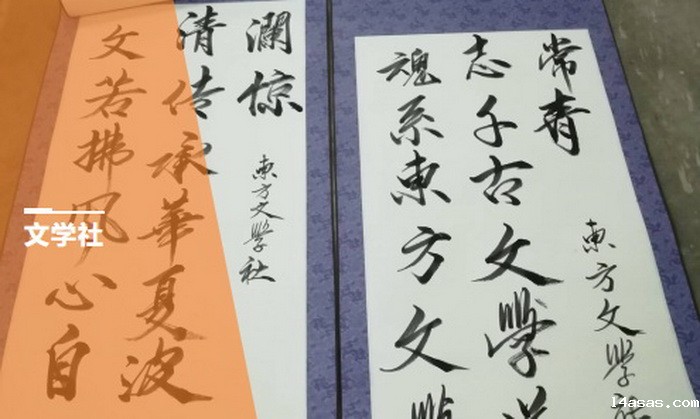 文学社
文若拂风心自
清传承華夏波
澜惊
東方文學社
魂系東方文學
志千古文學
常青
東方文學